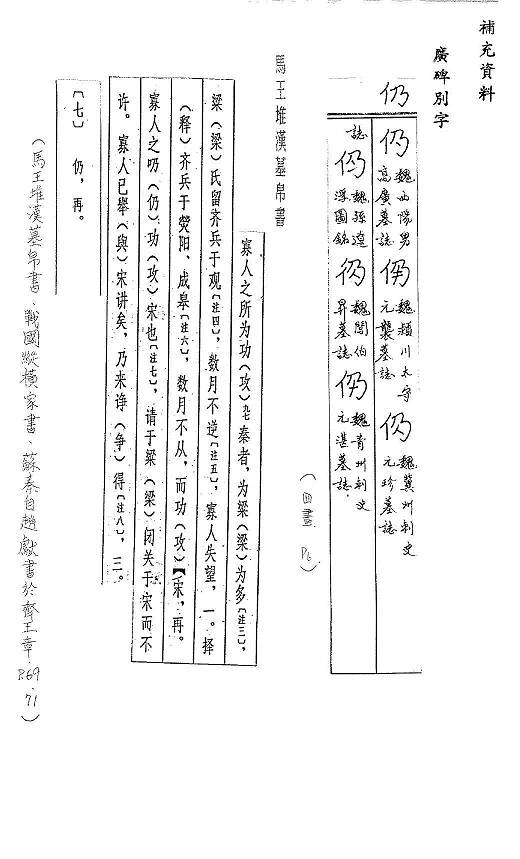 補充資料
廣碑別字
仍
仍魏西陽男高廣墓誌 仍魏潁川太守元襲墓誌 仍魏冀州刺史元珍墓誌
誌 仍魏孫遼浮圖銘 仍魏閻伯昇墓誌 仍魏青州刺史元湛墓誌。
(四畫 P6)
馬王堆漢墓帛書
寡人之所为功(攻)九七秦者,为梁(梁)为多〔注三〕,
梁(梁)氏留齐兵于观〔注四〕,数月不逆〔注五〕,寡人失望,一。择
(释)齐兵于荧阳、成皋〔注六〕,数月不从,而功(攻)【宋,再。
寡人之叨(仍)功(攻)宋也〔注七〕,请于梁(梁)闭关于宋而不
许。寡人已舉(與)宋讲矣,乃来诤(争)得〔注八〕,三。
〔七〕 仍,再。
(馬王堆漢墓帛書·戰國縱橫家書·蘇秦自趙獻書於齊王章·P.69·71)